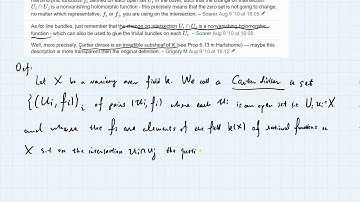 U_i ∩ U_j is a nonvanishing holomorphic function - this precisely means that the zero set is not going to change,
no matter which representative, f_i or f_j, you are using on the intersection. – Soarer Aug 9 '10 at 16:05
As for line bundles, just remember that the change on intersection U_i ∩ U_j is a nonvanishing holomorphic
function - which can also be used to glue the trivial bundles on each U_i. – Soarer Aug 9 '10 at 16:08
Well, more precisely, Cartier divisor is an invertible subsheaf of K (see Prop 6.13 in Hartshorne) — maybe this
description is more transparent then the original definition. – Grigory M Aug 9 '10 at 16:12
Def:
Let X be a variety over field k. We call a Cartier divisor a set
{(U_i, f_i)}_i of pairs (U_i, f_i) where each U_i is an open set i.e. U_i U_i = X
and where the f_i's are elements of the field k(X) of rational functions on
X s.t on the intersection U_i ∩ U_j the quoti